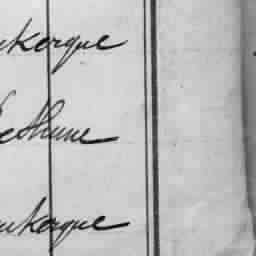 nkerque
Béthune
nkerque